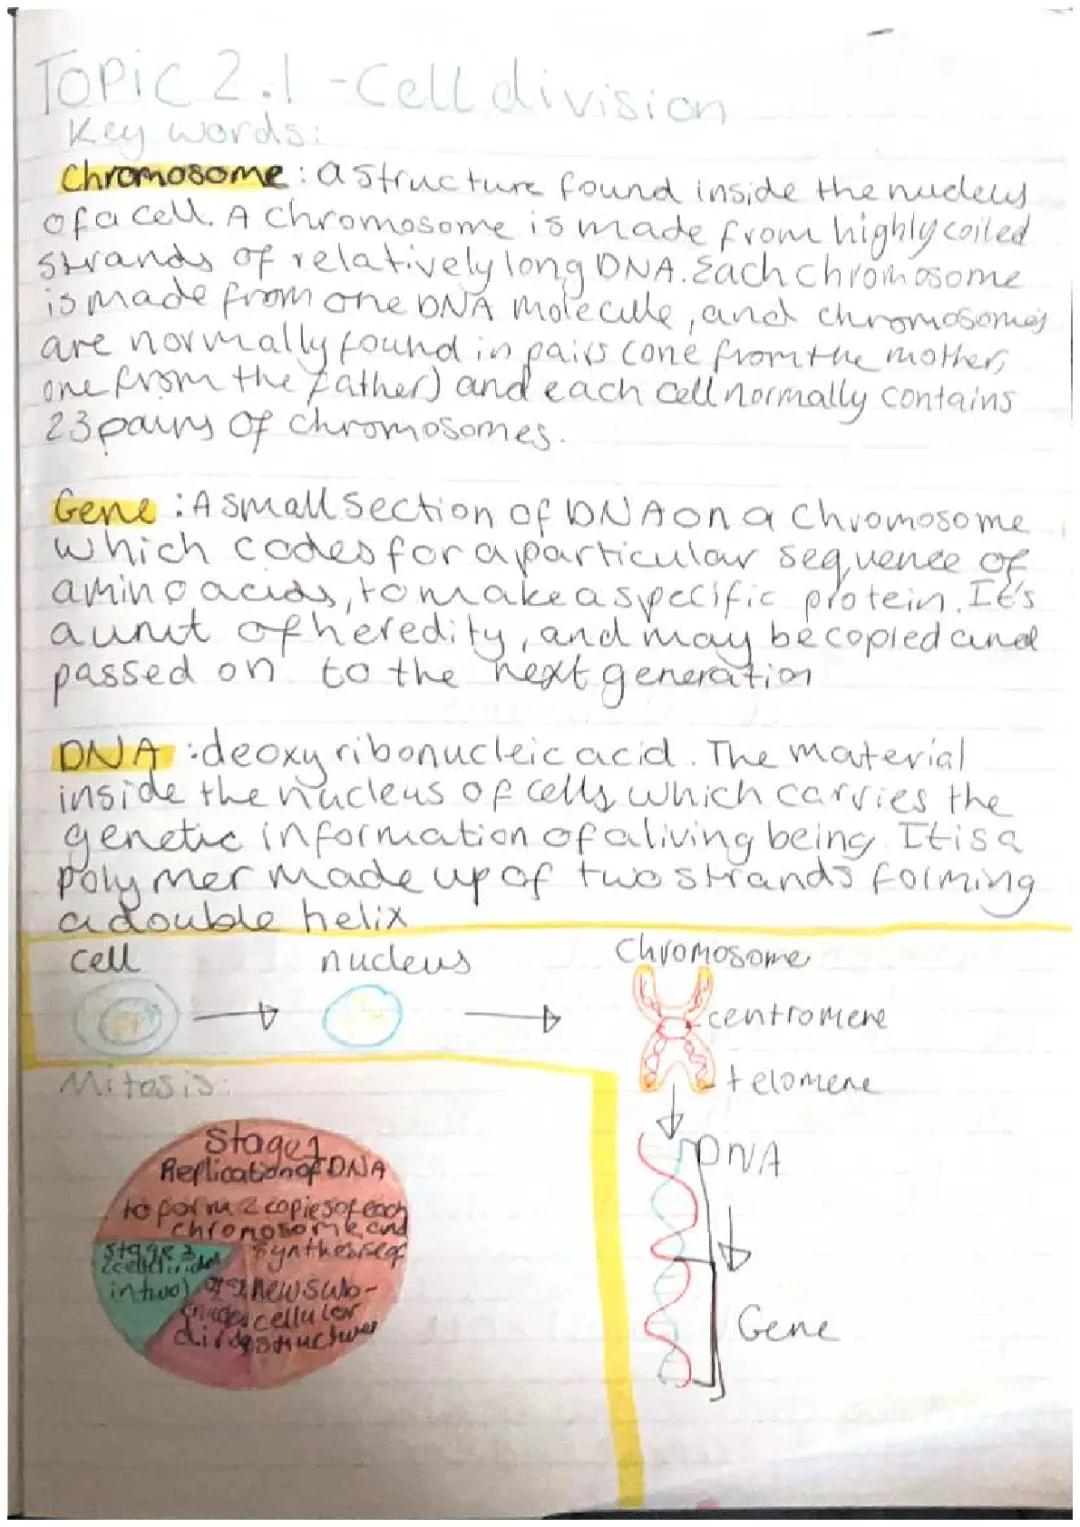 Topic 2.1 - Cell division
Key words:
Chromosome: a structure found inside the nucleus
of a cell. A chromosome is made from highly coiled
strands of relatively long DNA. Each chromosome
is made from one DNA molecule, and chromosomes
are normally found in pairs (one from the mother,
one from the father) and each cell normally contains
23 pairs of chromosomes.
Gene: A small section of DNA on a chromosome
which codes for a particular sequence of
amino acids, to make a specific protein. It's
a unit of heredity, and may be copied and
passed on to the next generation
DNA: deoxyribonucleic acid. The material
inside the nucleus of cells, which carries the
genetic information of a living being. It is a
polymer made up of two strands forming
a double helix
cell nucleus Chromosome
centromere
telomere
Mitosis:
DNA
Gene
Stage 1
Replication of DNA
to form 2 copies of each
chromosome and
synthesise of
new sub-
cellular
structures
Stage 3
in two)